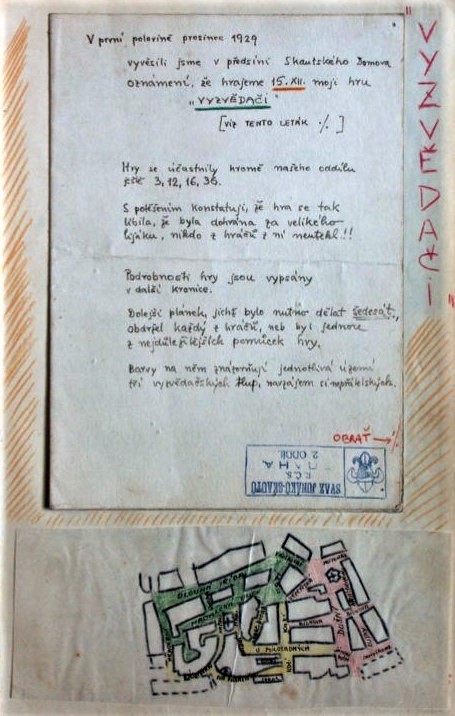 V první polovině prosince 1929
vyvěsili jsme v předsíni Skautského Domova
oznámení, že hrajeme 15.XII. moji hru
"VYZVĚDAČI"
[VIZ TENTO LETÁK ·/.]
Hry se účastnily kromě našeho oddílu
ještě 3, 12, 16, 36.
S potěšením konstatuji, že hra se tak
líbila, že byla dohrána za velikého
lijáku, nikdo z hráčů z ní neutekl!!
Podrobnosti hry jsou vypsány
v další kronice.
Dolejší plánek, jichž bylo nutno dělat šedesát,
obdržel každý z hráčů, neb byl jednou
z nejdůležitějších pomůcek hry.
Barvy na něm znázorňují jednotlivá území
tří vyzvědačských tlup, navzájem si nepřátelských.
OBRAŤ → ·/.
SVAZ JUNÁKŮ-SKAUTŮ
2. ODDÍL
"VYZVĚDAČI"
DLOUHÁ TŘÍDA
U MILOSRDNÝCH